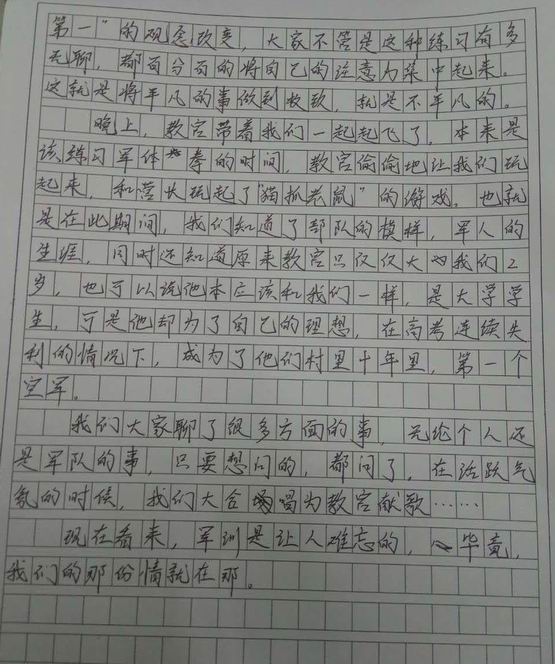 第一”的观念改变，大家不管是这种练习有多
无聊，都百分百的将自己的注意力集中起来。
这就是将平凡的事做到极致，就是不平凡的。
晚上，教官带着我们一起起飞了，本来是
该练习军体拳的时间，教官偷偷地让我们玩
起来，和营长玩起了“猫抓老鼠”的游戏。也就
是在此期间，我们知道了部队的模样，军人的
生涯，同时还知道原来教官只仅仅大我们2
岁，也可以说他本应该和我们一样，是大学学
生，可是他却为了自己的理想，在高考连续失
利的情况下，成为了他们村里十年里，第一个
空军。
我们大家聊了很多方面的事，无论个人还
是军队的事，只要想问的，都问了，在活跃气
氛的时候，我们大合唱为教官献歌……
现在看来，军训是让人难忘的，毕竟，
我们的那份情就在那。